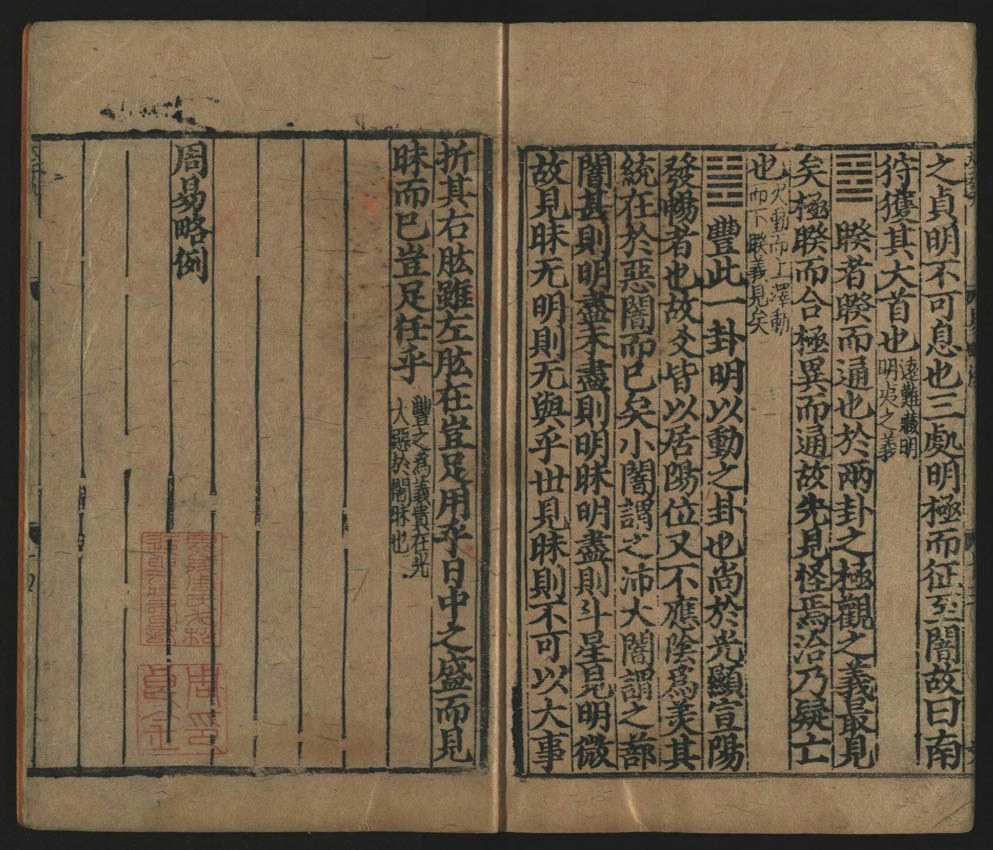 之貞明不可息也三處明極而征至闇故曰南
狩獲其大首也遠難藏明明夷之義
䷥睽者睽而通也於兩卦之極觀之義最見
矣極睽而合極異而通故先見怪焉洽乃疑亡
也火動而上澤動而下睽義見矣
䷶豐此一卦明以動之卦也尚於光顯宣陽
發暢者也故爻皆以居陽位又不應陰為羙其
統在於惡闇而已矣小闇謂之沛大闇謂之蔀
闇甚則明盡未盡則明昧明盡則斗星見明微
故見昧无明則无與乎世見昧則不可以大事
折其右肱雖左肱在豈足用乎日中之盛而見
昧而已豈足任乎豐之為義貴在光大惡於闇昧也
周易略例